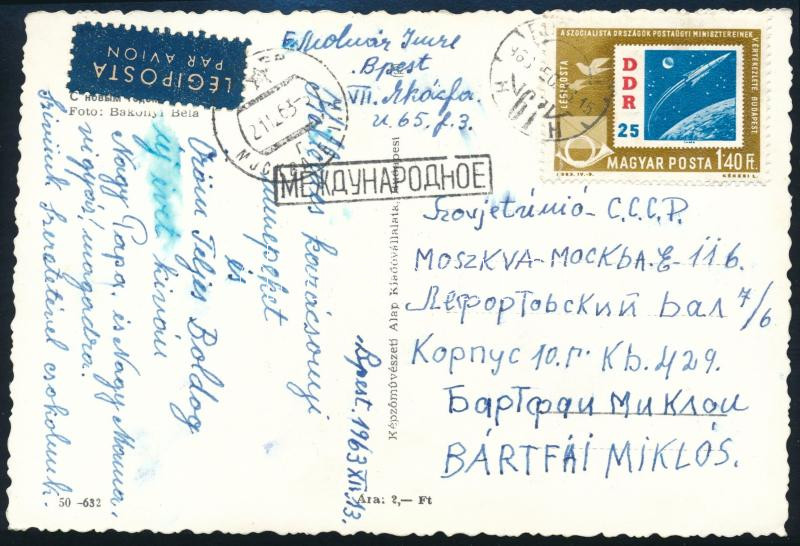 LÉGIPOSTA
PAR AVION
С НОВЫМ
Foto: Bakonyi Béla
МОСКВА
21 12 63
МЕЖДУНАРОДНОЕ
E. Molnár Imre
Bpest
VII. Akácfa
u. 65. f. 3.
Kellemes karácsonyi
ünnepeket
és
Örömteljes Boldog
új évet kíván
Nagy Papa, és Nagy Mama.
vigyázz magadra.
Szívünk szeretetével csokolunk.
Bpest. 1963 XII. 13.
50 -632
Ára: 2,— Ft
Képzőművészeti Alap Kiadóvállalata, Budapest
A SZOCIALISTA ORSZÁGOK POSTAÜGYI MINISZTEREINEK
ÉRTEKEZLETE, BUDAPEST
LÉGIPOSTA
DDR
25
MAGYAR POSTA 1'40 Ft.
1963. IV-V.
KÉKESI L.
Szovjetúnió - С.С.С.Р.
MOSZKVA - МОСКВА. Е - 116.
Лефортовский Вал 7/6
Корпус 10. г Кв. 429.
Бартфаи Миклош
BÁRTFÁI MIKLÓS.